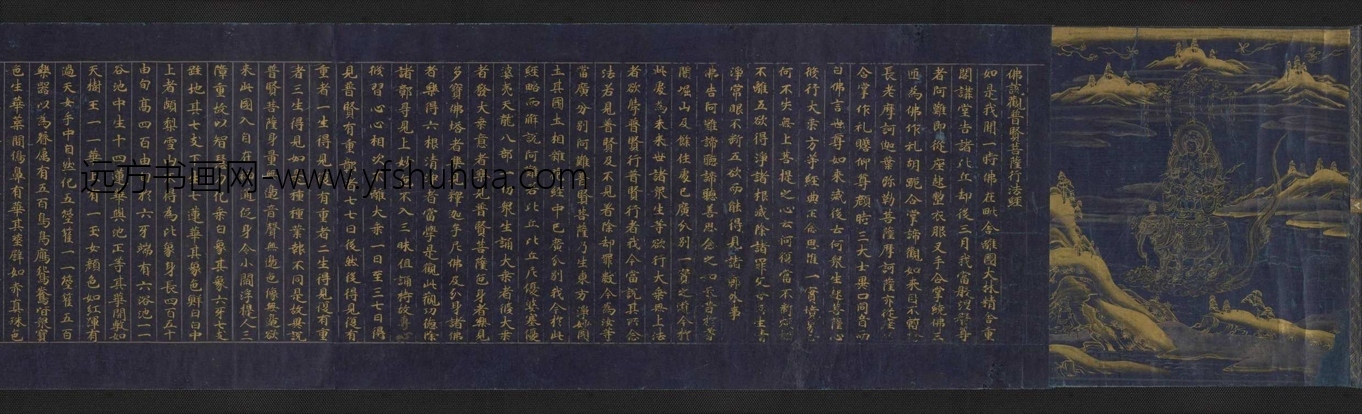 佛說觀普賢菩薩行法經
如是我聞一時佛在毗舍離國大林精舍重
閣講堂告諸比丘却後三月我當般涅槃尊
者阿難即從座起整衣服叉手合掌繞佛三
匝為佛作礼胡跪合掌諦觀如來目不暫
長老摩訶迦葉弥勒菩薩摩訶薩亦從座
合掌作礼瞻仰尊顏時三大士異口同音而
白佛言世尊如來滅後云何眾生起菩薩心
修行大乘方等經典正念思惟一實境界
何不失無上菩提之心云何復當不斷煩惱
不離五欲得淨諸根滅除諸罪父母所生
淨常眼不斷五欲而能得見諸鄣外事
佛告阿難諦聽諦聽善思念之如來昔於耆
闍崛山及餘住處已廣分別一實之道今於
此處為未來世諸眾生等欲行大乘無上法
者欲學普賢行普賢行者我今當說其所念
法若見普賢及不見者除却罪數今為汝等
當廣分別阿難普賢菩薩乃生東方淨妙國
土其國土相雜華經中已廣分別我今於此
經略而解說阿難若比丘比丘尼優婆塞優
婆夷天龍八部一切眾生誦大乘者修大乘
者發大乘意者樂見普賢菩薩色身者樂見
多寶佛塔者樂見釋迦牟尼佛及分身諸佛
者樂得六根清淨者當學是觀此觀功德除
諸鄣㝵見上妙色不入三昧但誦持故專
修習心心相次不離大乘一日至三七日得
見普賢有重鄣七七日後然後得見復有
重者一生得見復有重者二生得見復有重
者三生得見如是種種業報不同是故異說
普賢菩薩身量無邊音聲無邊色像無邊欲
來此國入自在神通促身令小閻浮提人三
障重故以智慧力化乘白象其象六牙七支
跓地其七支下生七蓮華其象色鮮白白中
上者頗梨雪山不得為比象身長四百五十
由旬高四百由旬於六牙端有六浴池一一
浴池中生十四蓮華與池正等其華開敷如
天樹王一一華上有一玉女顏色如紅渾有
過天女手中自然化五箜篌一一箜篌五百
樂器以為眷屬有五百鳥鳧鴈鴛鴦皆眾寶
色生華葉間象鼻有華其莖譬如赤真珠色
远方书画网-www.yfshuhua.com